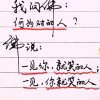 我问佛：
何为破的人？
佛说：
一见你，就笑的人，
一见你，就笑的人。